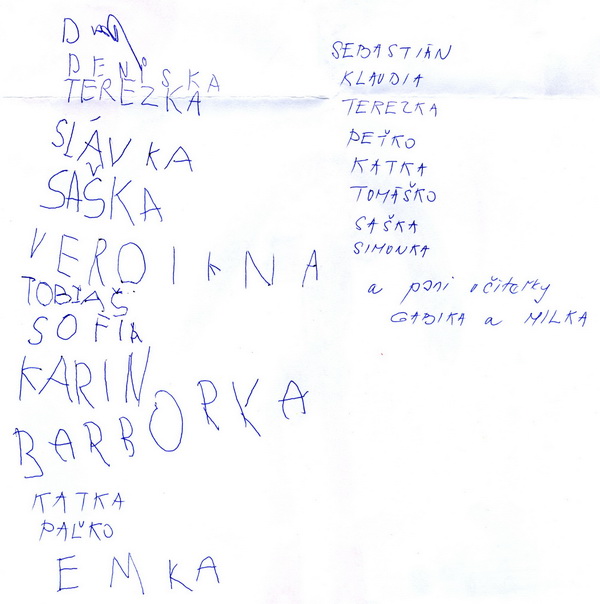 DENISKA
TEREZKA
SLÁVKA
SAŠKA
VEROIKNA
TOBIAŠ
SOFIA
KARIN
BARBORKA
KATKA
PAĽKO
EMKA
SEBASTIÁN
KLAUDIA
TEREZKA
PEŤKO
KATKA
TOMÁŠKO
SAŠKA
SIMONKA
a pani učiteľky
GABIKA a MILKA